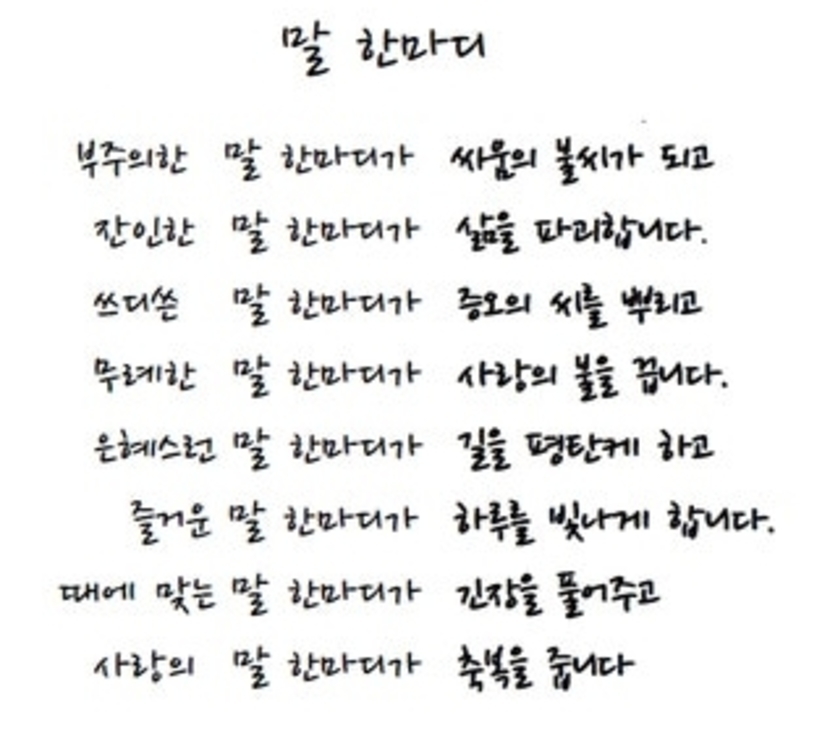 말 한마디
부주의한 말 한마디가 싸움의 불씨가 되고
잔인한 말 한마디가 삶을 파괴합니다.
쓰디쓴 말 한마디가 증오의 씨를 뿌리고
무례한 말 한마디가 사랑의 불을 끕니다.
은혜스런 말 한마디가 길을 평탄케 하고
즐거운 말 한마디가 하루를 빛나게 합니다.
때에 맞는 말 한마디가 긴장을 풀어주고
사랑의 말 한마디가 축복을 줍니다